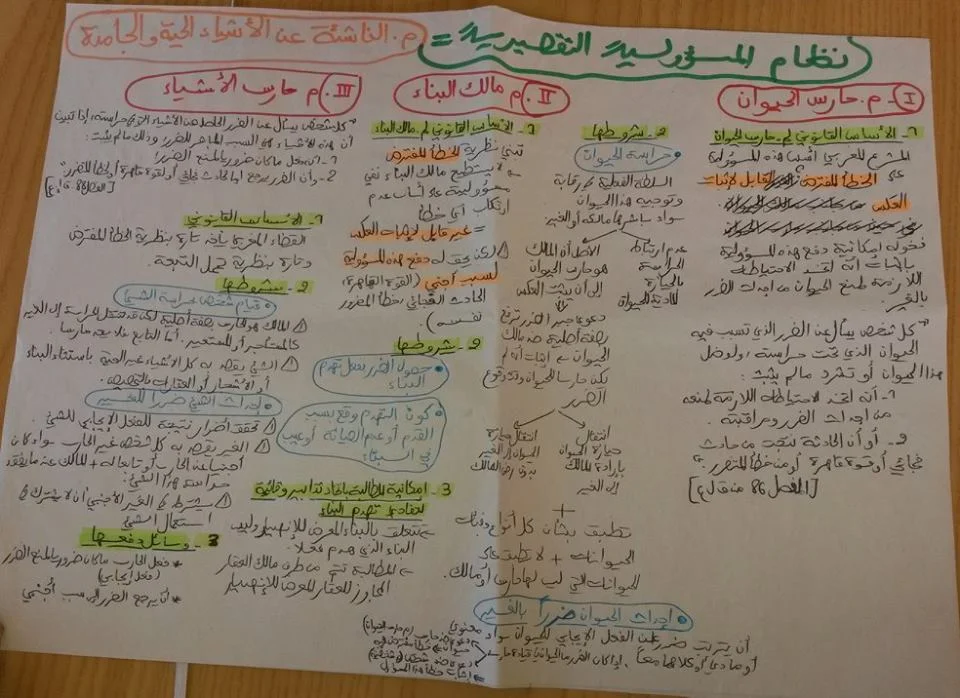 نظام المسؤولية التقصيرية =
م. الناشئة عن الأشياء الحية والجامدة
I- م. حارس الحيوان
1- الأساس القانوني لم. حارس الحيوان
المشرع المغربي أسس هذه المسؤولية
على الخطأ المفترض القابل لإثبات
العكس
فخوله إمكانية دفع هذه المسؤولية
بإثبات أنه اتخذ الاحتياطات
اللازمة لمنع الحيوان من إحداث الضرر
بالغير.
"كل شخص يسأل عن الضرر الذي تسبب فيه
الحيوان الذي تحت حراسته، ولو ضل
هذا الحيوان أو تشرد ما لم يثبت:
1- أنه اتخذ الاحتياطات اللازمة لمنعه
من إحداث الضرر ومراقبته.
2- أو أن الحادثة نتجت من حادث
فجائي أو قوة قاهرة أو من خطأ المتضرر."
[الفصل 86 من ق ل ع]
2- شروطها
• حراسة الحيوان
السلطة الفعلية في رقابة
وتوجيه هذا الحيوان
سواء باشرها مالكه أو الغير
عدم ارتباط
الحراسة
بالحيازة
المادية للحيوان
الأصل أن المالك
هو حارس الحيوان
إلى أن يثبت العكس
دعوى جبر الضرر ترفع
بصفة أصلية ضد مالك
الحيوان
الضرر
انتقال
حيازة الحيوان
بإرادة المالك
إلى الغير
انتقال حيازة
الحيوان إلى الغير
بدون رضى المالك
+
تطبق بشأن كل أنواع وفئات
الحيوانات + لا تطبق على
الحيوانات التي ليس لها حارس أو مالك.
• إحداث الحيوان ضررا بالغير
أن يترتب ضرر عن الفعل الإيجابي للحيوان سواء معنوي
أو مادي أو كلاهما معا.
II. م مالك البناء
1- الأساس القانوني لم. مالك البناء
تبني نظرية الخطأ المفترض
لا يستطيع مالك البناء نفي
مسؤوليته على أساس عدم
ارتكاب أي خطأ
= غير قابل لإثبات العكس
لكن يحق له دفع هذه المسؤولية
لسبب أجنبي (القوة القاهرة،
الحادث الفجائي، خطأ المضرور
نفسه).
2- شروطها
• حصول الضرر بفعل تهدم
البناء
• كون التهدم وقع بسبب
القدم أو عدم الصيانة أو عيب
في البناء
3- إمكانية المطالبة باتخاذ تدابير وقائية
لتفادي تهدم البناء
تتعلق بالبناء المعرض للانهيار وليس
البناء الذي هدم فعلا.
المطالبة تتم من طرف مالك العقار
المجاور للعقار المعرض للانهيار
III. م حارس الأشياء
"كل شخص يسأل عن الضرر الحاصل من الأشياء التي في حراسته، إذا تبين
أن هذه الأشياء هي السبب المباشر للضرر وذلك ما لم يثبت:
1- أنه فعل ما كان ضروريا لمنع الضرر؛
2- وأن الضرر يرجع إما لحادث فجائي أو لقوة قاهرة أو لخطأ المتضرر."
[الفصل 88 ق ل ع]
1- الأساس القانوني
القضاء المغربي يأخذ تارة بنظرية الخطأ المفترض
وتارة بنظرية تحمل التبعة.
2- شروطها
• قيام شخص بحراسة الشيء
المالك هو الحارس بصفة أصلية لكن قد تنتقل الحراسة إلى الغير
كالمستأجر أو المستعير. أما التابع فلا يعد حارسا.
الشيء يقصد به كل الأشياء غير الحية باستثناء البناء
• إحداث الشيء ضررا للغير
تحقق أضرار نتيجة للفعل الإيجابي للشيء
الغير يقصد به كل شخص غير الحارس سواء كان
أجنبيا عن الحارس أو تابعا له + المالك عندما يفقد
حراسة هذا الشيء.
يشترط في الغير الأجنبي أن لا يشترك في
استعمال الشيء
3- وسائل دفعها
* فعل الحارس ما كان ضروريا لمنع الضرر
(فعل إيجابي)
* أن يرجع الضرر إلى سبب أجنبي